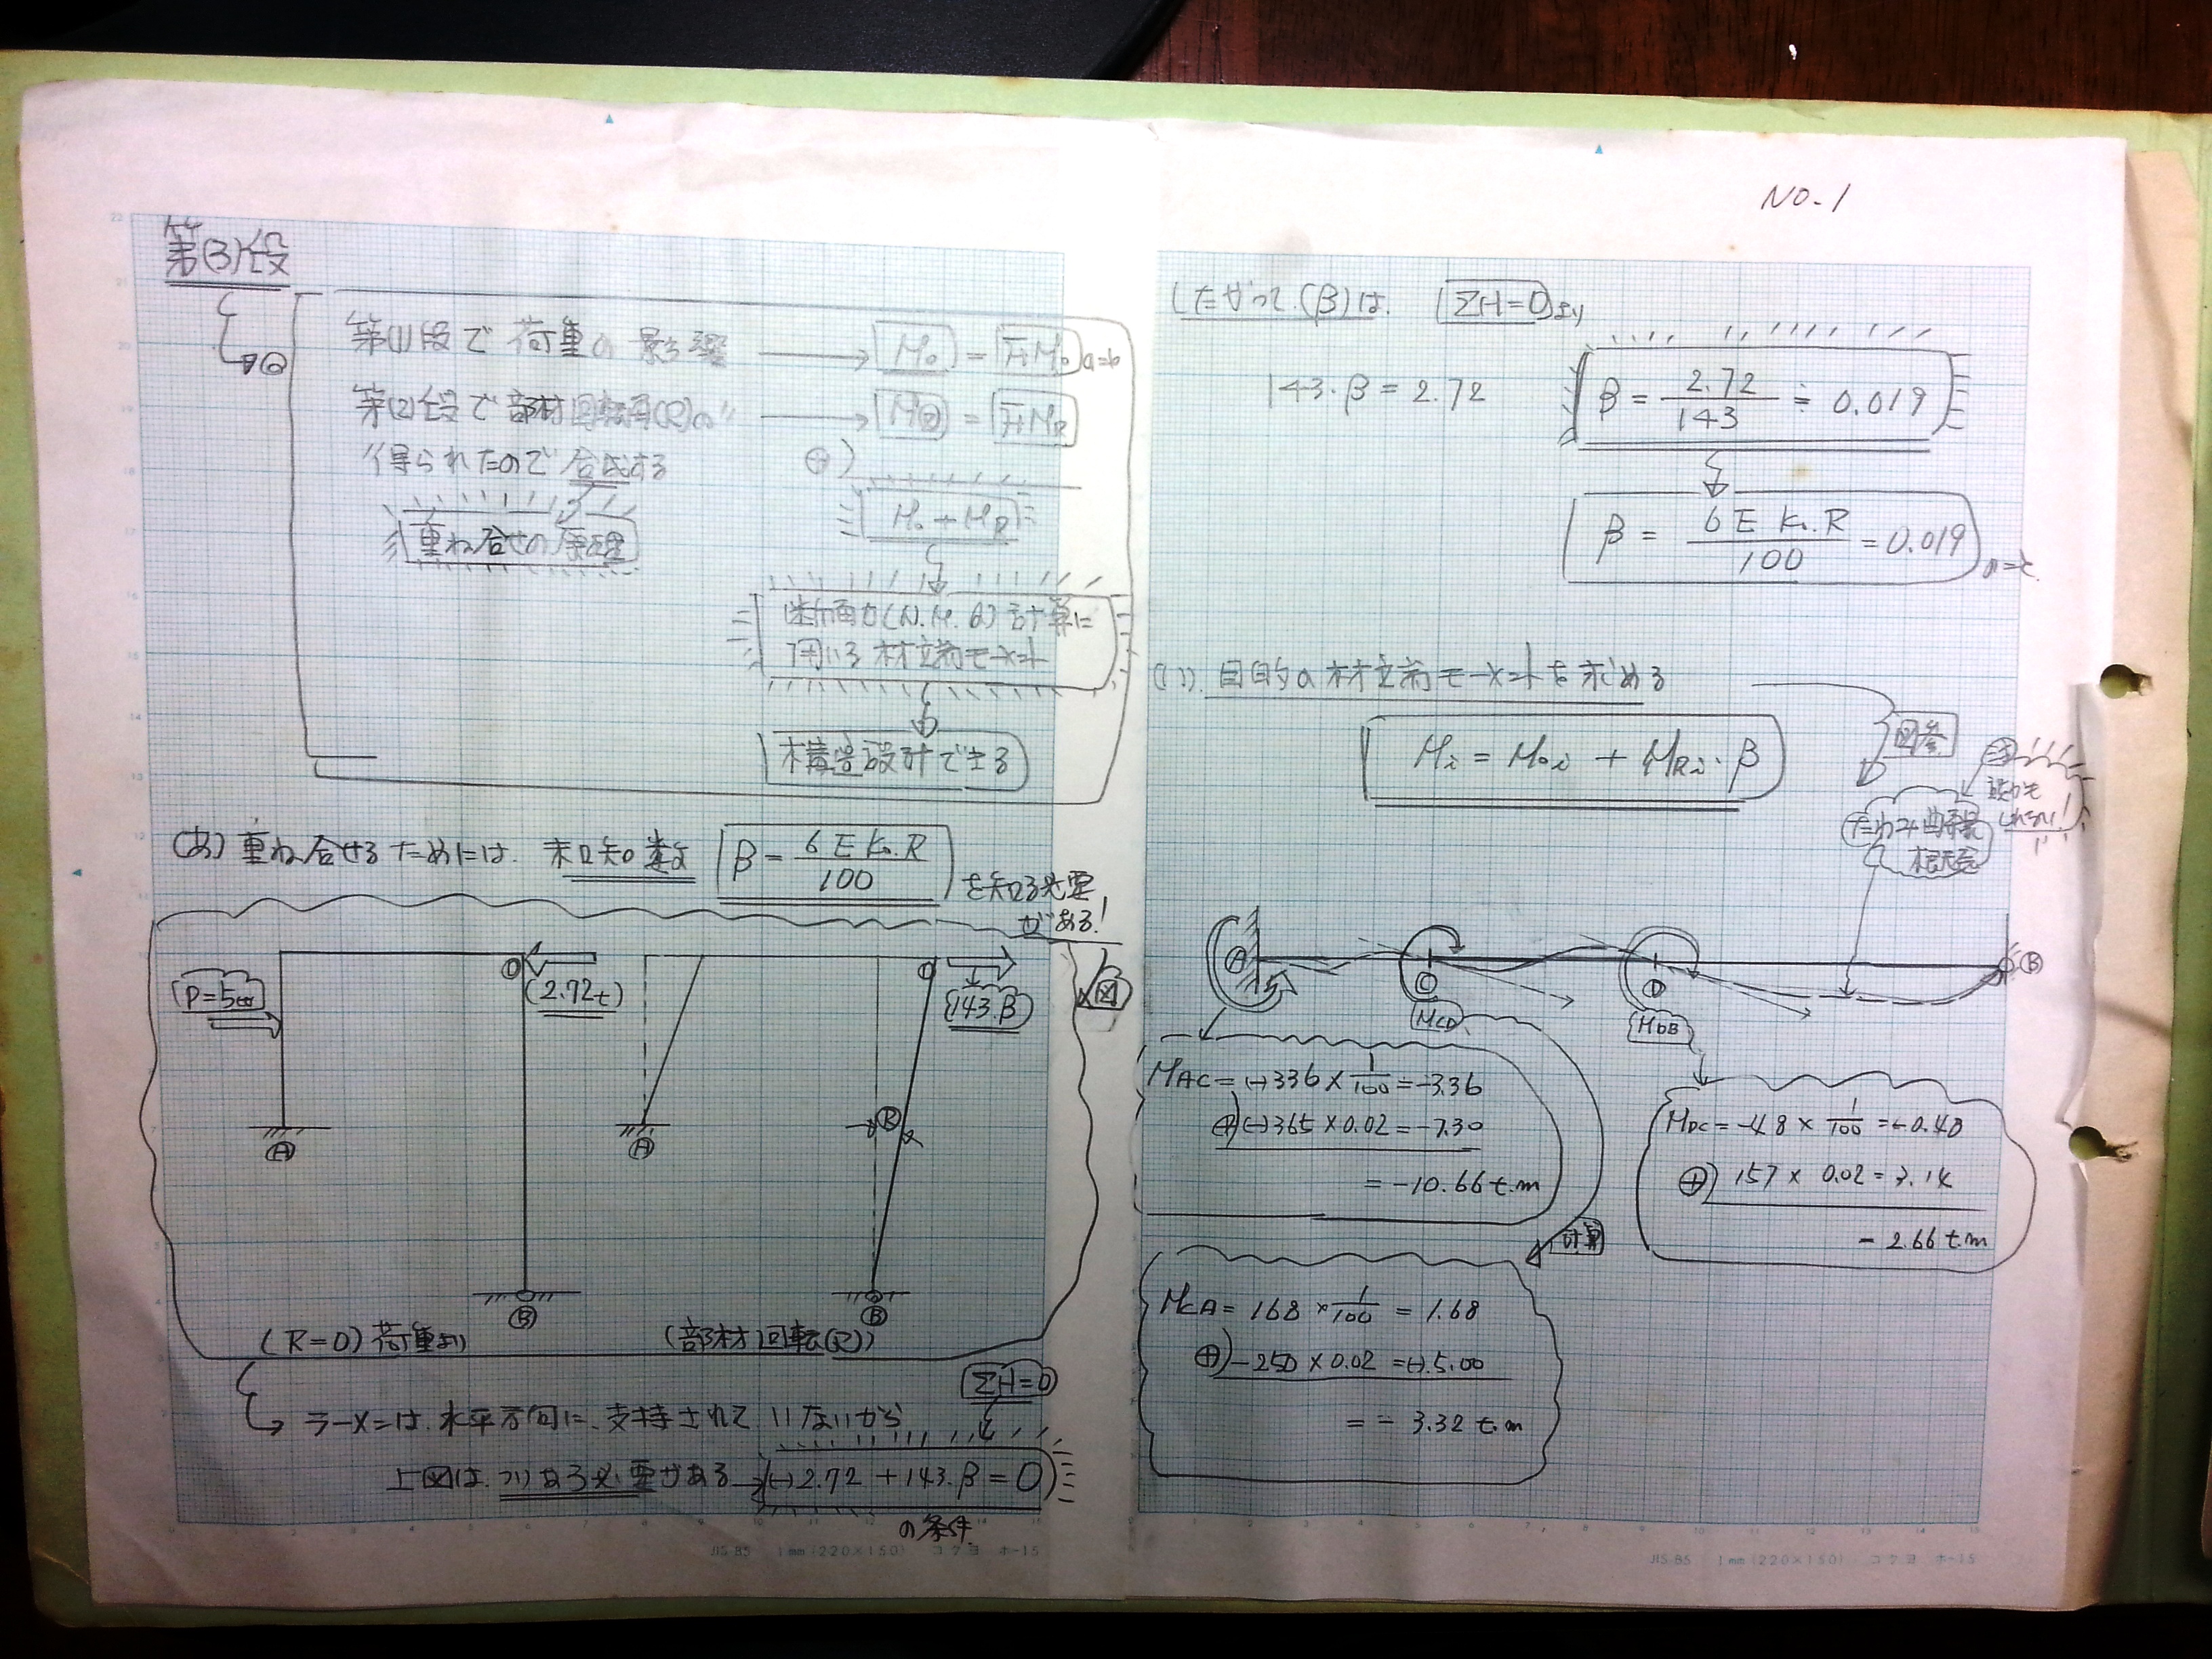 第(3)段
第(1)段で荷重の影響 → M₀ = FM₀
第(2)段で部材回転角(R)の〃 → M = FM_R
得られたので合成する
⊕)
M₀ + M_R
重ね合せの原理
断面力(N.M.Q)計算に
用いる材端モーメント
構造設計できる
(あ) 重ね合せるためには、未知数 β = 6EK₀.R / 100 を知る必要
がある!
P=5
(2.72t)
143.β
図
D
A
B
A
R
B
(R=0)荷重より
(部材回転(R))
ΣH=0
ラーメンは、水平方向に、支持されていないから
上図は、つりあう必要がある → (-)2.72 + 143.β = 0
の条件
JIS B5 1mm(220×150) コクヨ ホ-15
NO.1
したがって、(β)は、 ΣH=0より
143.β = 2.72
β = 2.72 / 143 ≒ 0.019
β = 6EK₀.R / 100 = 0.019
(い) 目的の材端モーメントを求める
図参
Mi = M₀i + MRi.β
たわみ曲線
A
C
D
B
MCD
MDB
MAC = (-)336 × 1/100 = -3.36
⊕)(-)365 × 0.02 = -7.30
= -10.66 t.m
MDC = -48 × 1/100 = -0.48
⊕) 157 × 0.02 = 3.14
- 2.66 t.m
計算
MCA = 168 × 1/100 = 1.68
⊕) -250 × 0.02 = (-).5.00
= - 3.32 t.m
JIS B5 1mm(220×150) コクヨ ホ-15